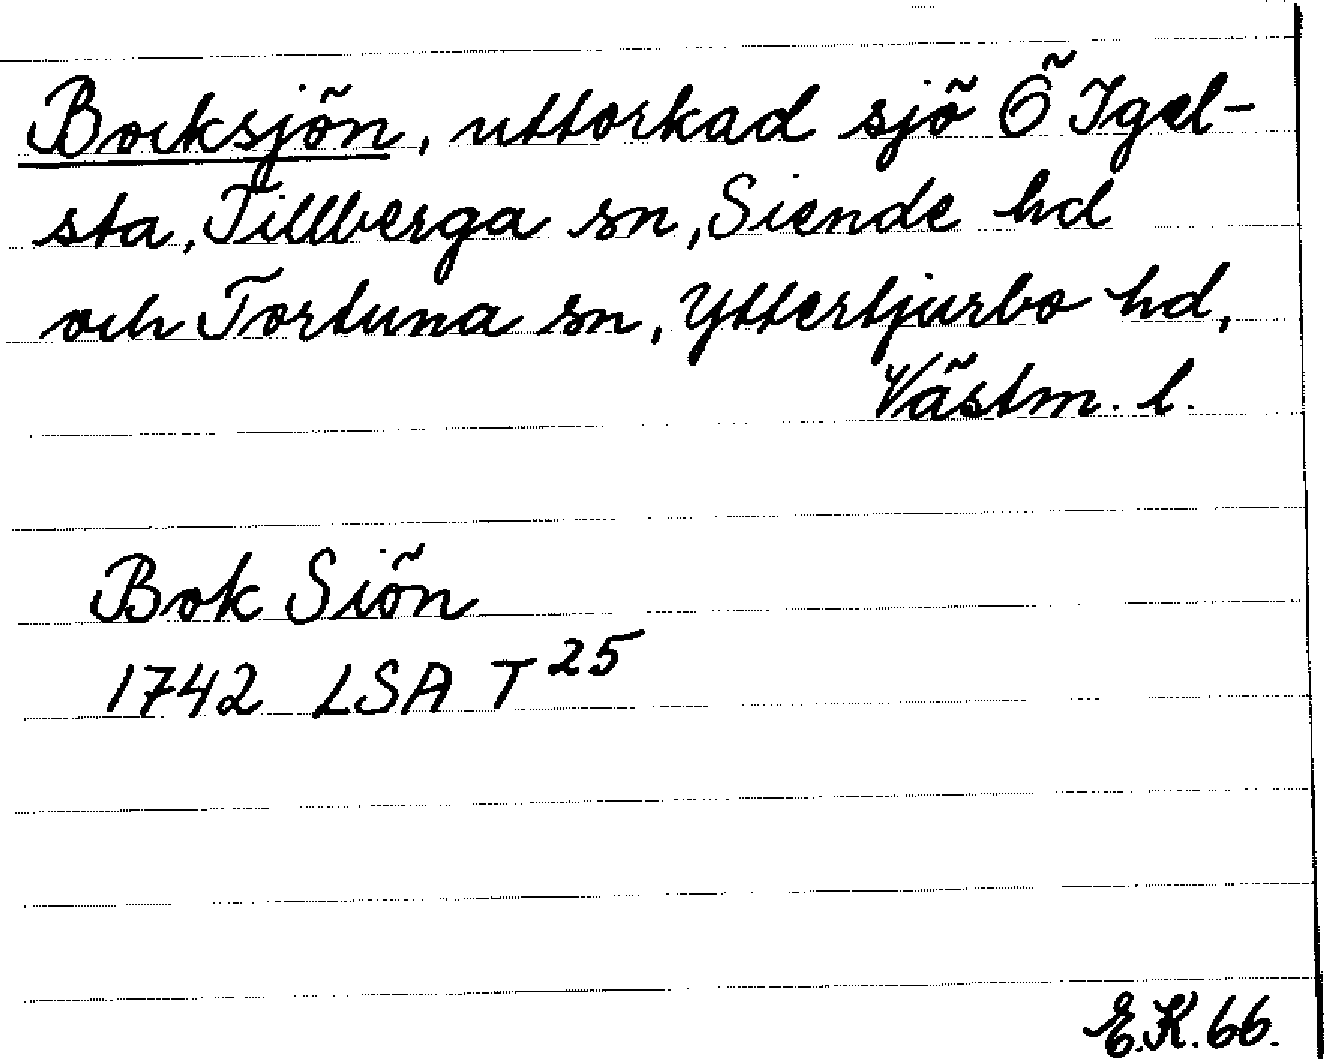 Bocksjön, uttorkad sjö Ö Igel-
sta, Tillberga sn, Siende hd
och Tortuna sn, Yttertjurbo hd,
Västm. l.
Bok Siön
1742 LSA T 25
E.K. 66.